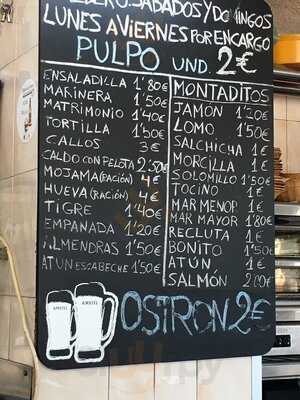 SABADOS Y DOMINGOS
LUNES A VIERNES POR ENCARGO
PULPO UND. 2€
ENSALADILLA 1'80€
MARINERA 1'50€
MATRIMONIO 1'40€
TORTILLA 1'50€
CALLOS 3€
CALDO CON PELOTA 2'50€
MOJAMA (RACIÓN) 4€
HUEVA (RACIÓN) 4€
TIGRE 1'40€
EMPANADA 1'20€
ALMENDRAS 1'50€
ATUN ESCABECHE 1'50€
MONTADITOS
JAMÓN 1'20€
LOMO 1'50€
SALCHICHA 1€
MORCILLA 1€
SOLOMILLO 1'50€
TOCINO 1€
MAR MENOR 1€
MAR MAYOR 1'80€
RECLUTA 1€
BONITO 1'50€
ATÚN 1€
SALMÓN 2'00€
AMSTEL AMSTEL
OSTRON 2€